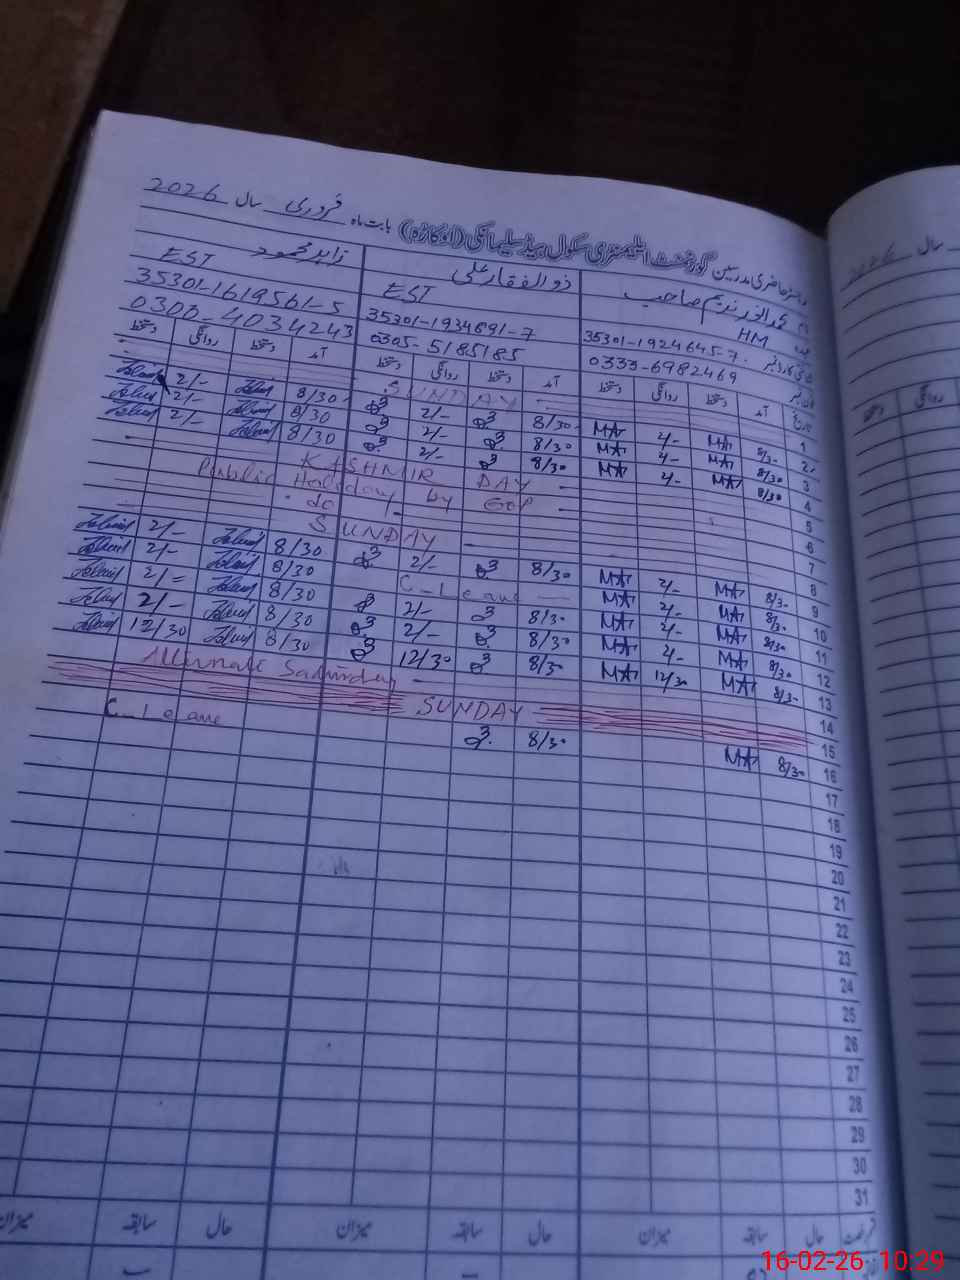 رجسٹر حاضری مدرسین گورنمنٹ ایلیمنٹری سکول ہیڈ سلیمانکی (اوکاڑہ) بابت ماہ فروری سال 2026
ذوالفقار علی زاہد محمود
HM EST EST
35301-1924645-7 35301-1934891-7 35301-1619561-5
0333-6982469 0305-5185185 0300-4034243
تاریخ آمد دستخط روانگی دستخط آمد دستخط روانگی دستخط آمد دستخط روانگی دستخط
1 SUNDAY
2 8/30 MA 2/- MA 8/30 2/- 8/30 2/-
3 8/30 MA 2/- MA 8/30 2/- 8/30 2/-
4 8/30 MA 2/- MA 8/30 2/- 8/30 2/-
5 KASHMIR DAY
6 Public Holiday by GOP
7 do
8 SUNDAY
9 8/30 MA 2/- MA 8/30 2/- 8/30 2/-
10 8/30 MA 2/- MA C-Leave 8/30 2/-
11 8/30 MA 2/- MA 8/30 2/- 8/30 2/=
12 8/30 MA 2/- MA 8/30 2/- 8/30 2/-
13 8/30 MA 12/30 MA 8/30 12/30 8/30 12/30
14 Alternate Saturday
15 SUNDAY
16 8/30 MA 8/30 C-Leave
17
18
19
20
21
22
23
24
25
26
27
28
29
30
31
حال سابقہ میزان حال سابقہ میزان حال سابقہ میزان
سال
روانگی دستخط
16-02-26 10:29